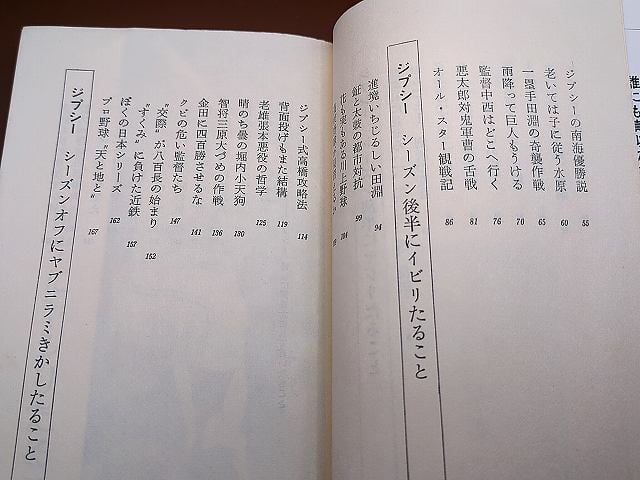 ジプシーの南海優勝説 55
老いては子に従う水原 60
一塁手田淵の奇襲作戦 65
雨降って巨人もうける 70
監督中西はどこへ行く 76
悪太郎対鬼軍曹の舌戦 81
オール・スター観戦記 86
ジプシー シーズン後半にイビリたること
進境いちじるしい田淵 94
鉦と太鼓の都市対抗 99
花も実もある川上野球 104
ジプシー式高橋攻略法 114
背面投げもまた結構 119
老雄張本悪役の哲学 125
晴のち曇の堀内小天狗 130
智将三原大づめの作戦 136
金田に四百勝させるな 141
クビの危い監督たち 147
“交際”が八百長の始まり 152
“すくみ”に負けた近鉄 157
ぼくの日本シリーズ 162
プロ野球“天と地と” 167
ジプシー シーズンオフにヤブニラミきかしたること